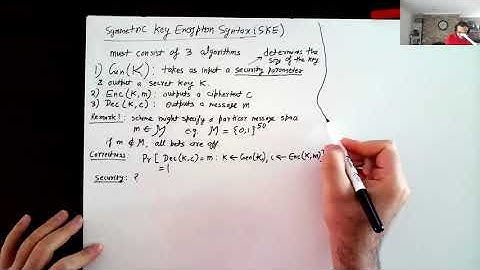 Symmetric Key Encryption Syntax (SKE)
must consist of 3 algorithms
determines the
size of the key
1) Gen(K): takes as input a security parameter
& output a secret key K.
2) Enc(K,m): outputs a ciphertext C
3) Dec(K,c): outputs a message m
Remark 1: scheme might specify a particular message space
m ∈ M e.g. M = {0,1}^50
if m ∉ M, all bets are off
Correctness: Pr [ Dec(K,c) = m : K ← Gen(K), c ← Enc(K,m)]
= 1
Security: ?